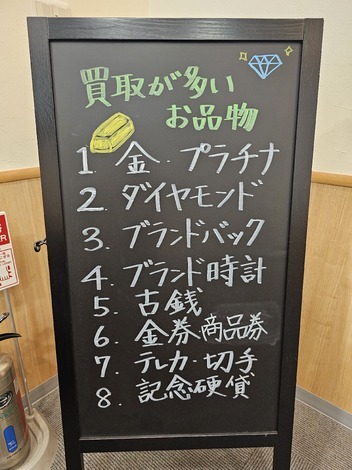 買取が多い
お品物
1 金・プラチナ
2. ダイヤモンド
3. ブランドバック
4. ブランド時計
5. 古銭
6. 金券、商品券
7. テレカ・切手
8. 記念硬貨